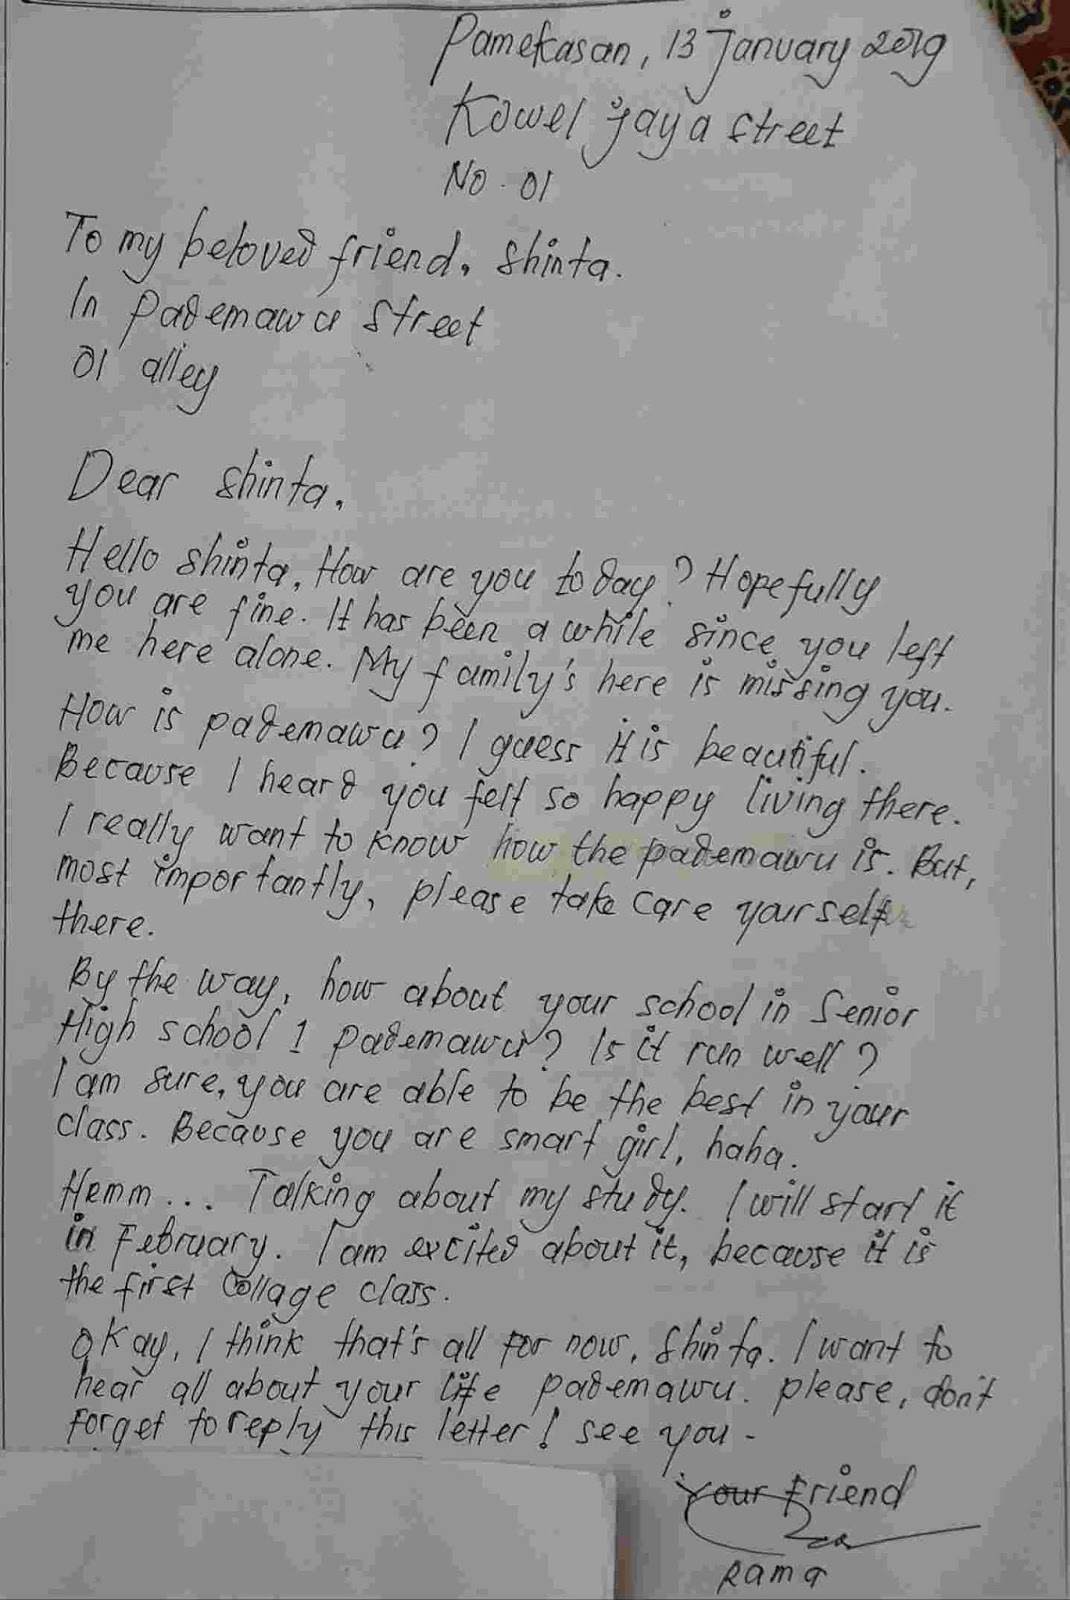 Pamekasan, 13 January 2019
Kowel Jaya Street
No. 01
To my beloved friend, Shinta.
In Pademawu Street
01 alley
Dear Shinta,
Hello Shinta, How are you today? Hopefully
you are fine. It has been a while since you left
me here alone. My family's here is missing you.
How is pademawu? I guess it is beautiful.
Because I heard you felt so happy living there.
I really want to know how the pademawu is. But,
most importantly, please take care yourself
there.
By the way, how about your school in Senior
High school 1 Pademawu? Is it run well?
I am sure, you are able to be the best in your
class. Because you are smart girl, haha.
Hemm... Talking about my study. I will start it
in February. I am excited about it, because it is
the first collage class.
Okay, I think that's all for now, Shinta. I want to
hear all about your life pademawu. please, don't
forget to reply this letter! see you -
Your friend
Rama